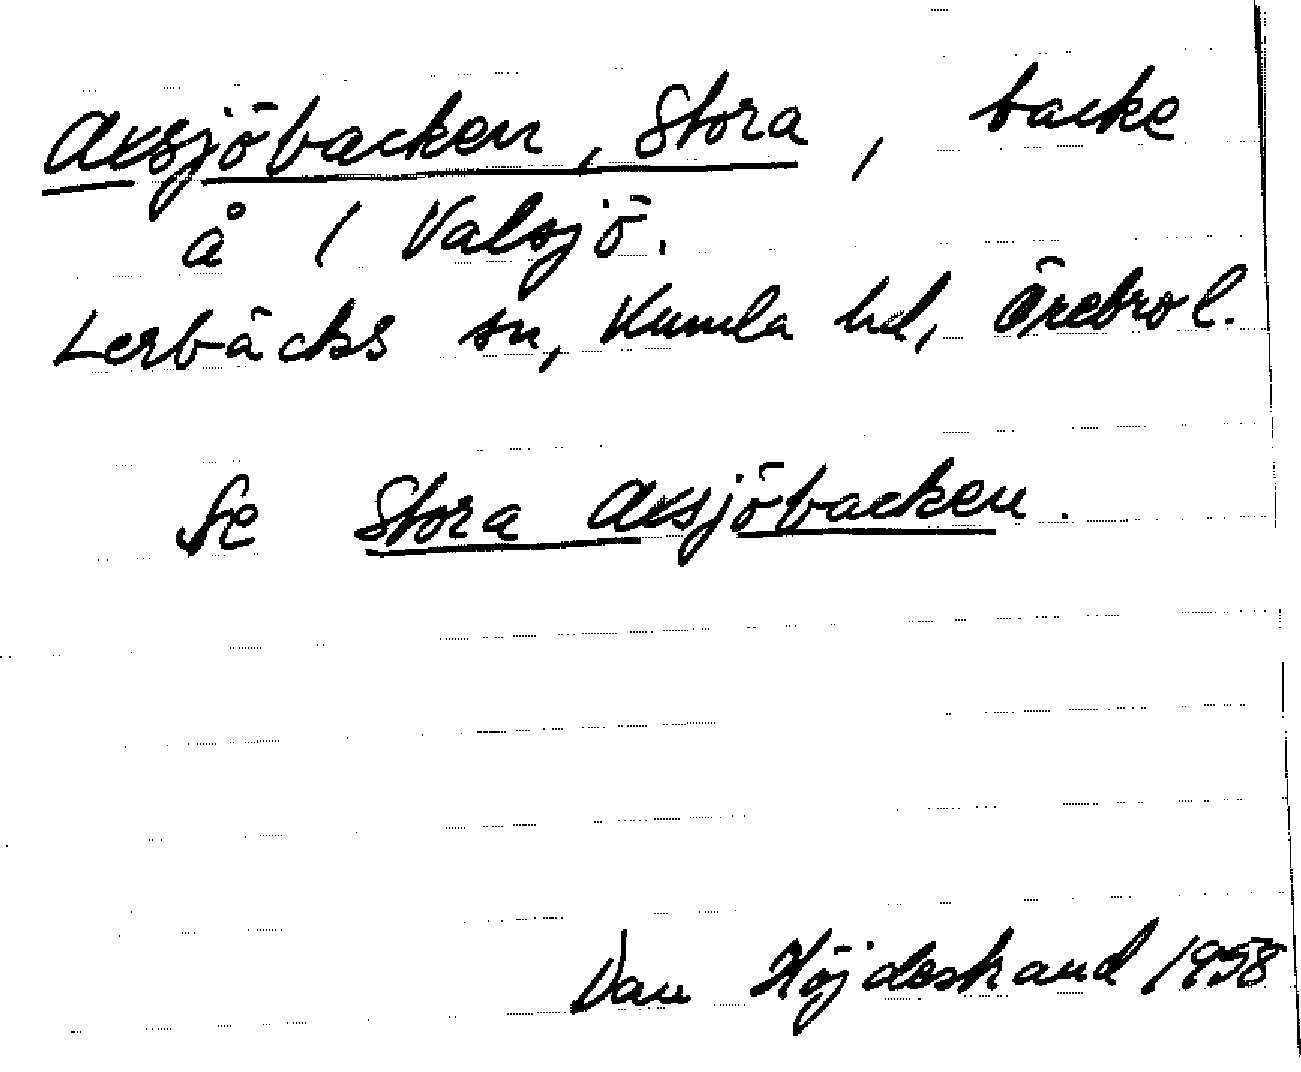 Axsjöbacken, Stora, backe
å 1 Valsjö.
Lerbäcks sn, Kumla hd, Örebro l.
Se Stora Axsjöbacken.
Dan Höjdestrand 1958